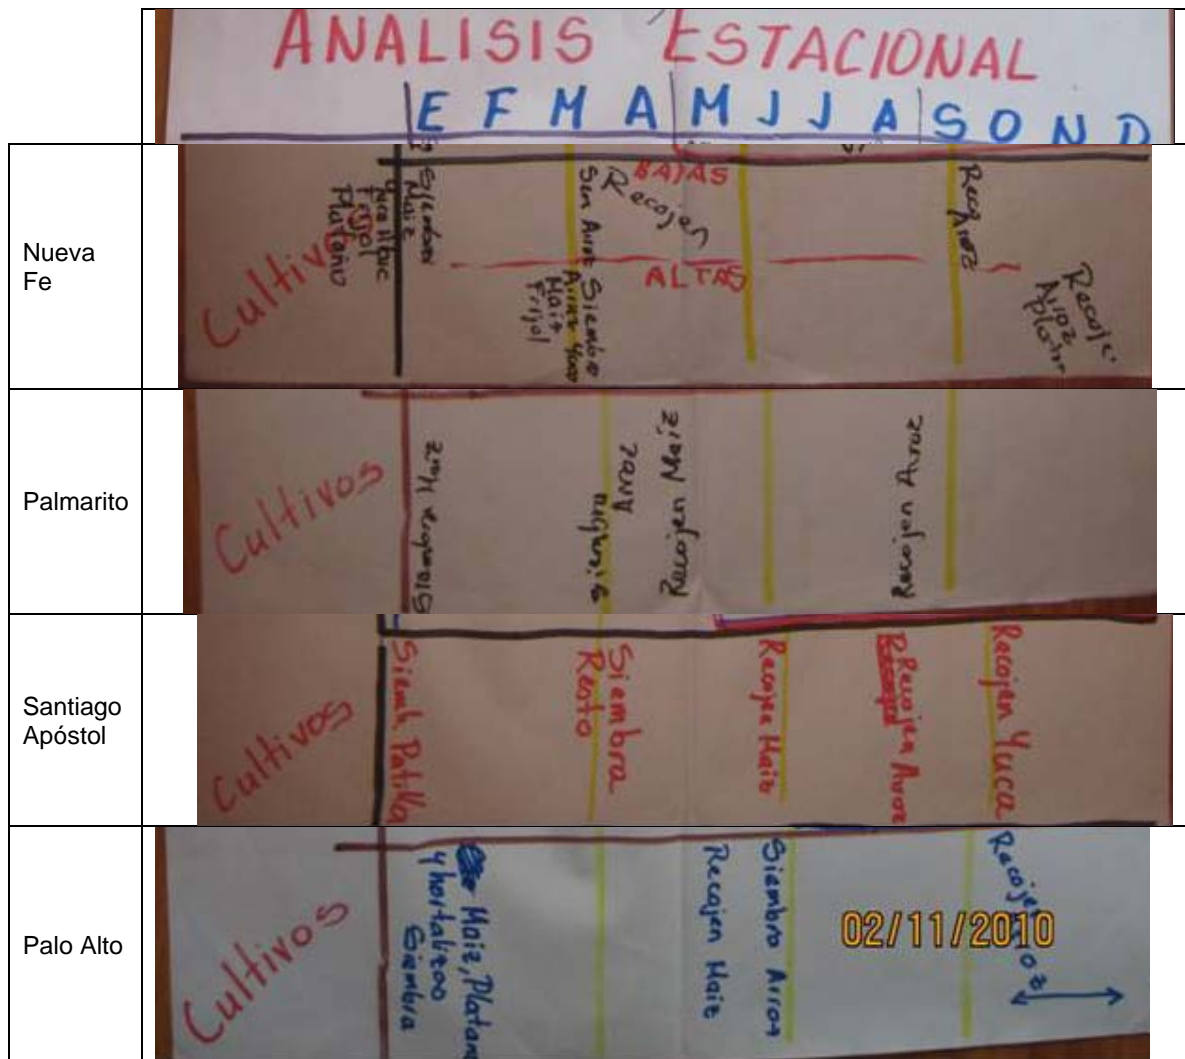 ANALISIS ESTACIONAL
E F M A M J J A S O N D
Nueva
Fe
Cultivos
Siembran
Maiz
Frijol
Platano
Sem Arroz
BAJAS
Recojen
ALTAS
Siembra
Arroz Yuca
Maiz
Frijol
Reco
Arroz
Recoje
Arroz
Palmarito
Cultivos
Siembran Maiz
Siembra
Arroz
Recojen Maiz
Recojen Arroz
Santiago
Apóstol
Cultivos
Siemb. Patilla
Siembra
Resto
Recojen Maiz
Recojen Arroz
Recojen Yuca
Palo Alto
Cultivos
Maiz, Platano
y hortalizas
Siembra
Recojen Maiz
Siembra Arroz
Recojen Arroz
02/11/2010